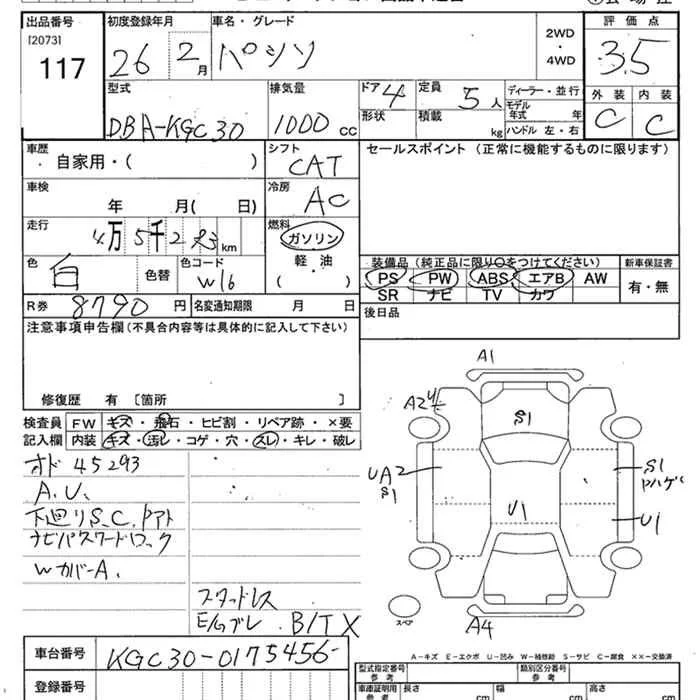 出品番号 初度登録年月 車名・グレード 評価点
[2073]
117
26 年 2月 パッソ
2WD
・
4WD
3.5
型式 排気量 ドア 4 定員 5人 ディーラー・並行 外装 内装
DBA-KGC30 1000cc 形状 積載 kg モデル年式 年 C C
ハンドル 左・右
車歴 シフト セールスポイント (正常に機能するものに限ります)
自家用・( ) CAT
車検 冷房
年 月( 日) AC
走行 燃料
4万5千2 93km ガソリン
色 白 色替 色コード W16 軽油
( )
装備品 (純正品に限り○をつけてください) 新車保証書
PS PW ABS エアB AW 有・無
SR ナビ TV カワ
R券 8790円 名変通知期限 月 日 後日品
注意事項申告欄 (不具合内容等は具体的に記入して下さい)
修復歴 有 [箇所 ]
検査員 FW キズ・飛石・ヒビ割・リペア跡・×要
記入欄 内装 キズ・汚し・コゲ・穴・スレ・キレ・破レ
オド 45293
A.U.
下廻りS.C.Pアト
ナビパスワードロック
WカバーA.
スタッドレス
E/gブレ B/TX
A1
A2
S1
UA2
S1
S1
ドハゲ
U1
U1
A4
スペア
A-キズ E-エクボ U-凹み W-補修跡 S-サビ C-腐食 ××-交換済
車台番号 KGC30-0175456-
登録番号
型式指定番号 参考 類別区分番号 参考
車庫証明用 参考 長さ cm 幅 cm 高さ cm